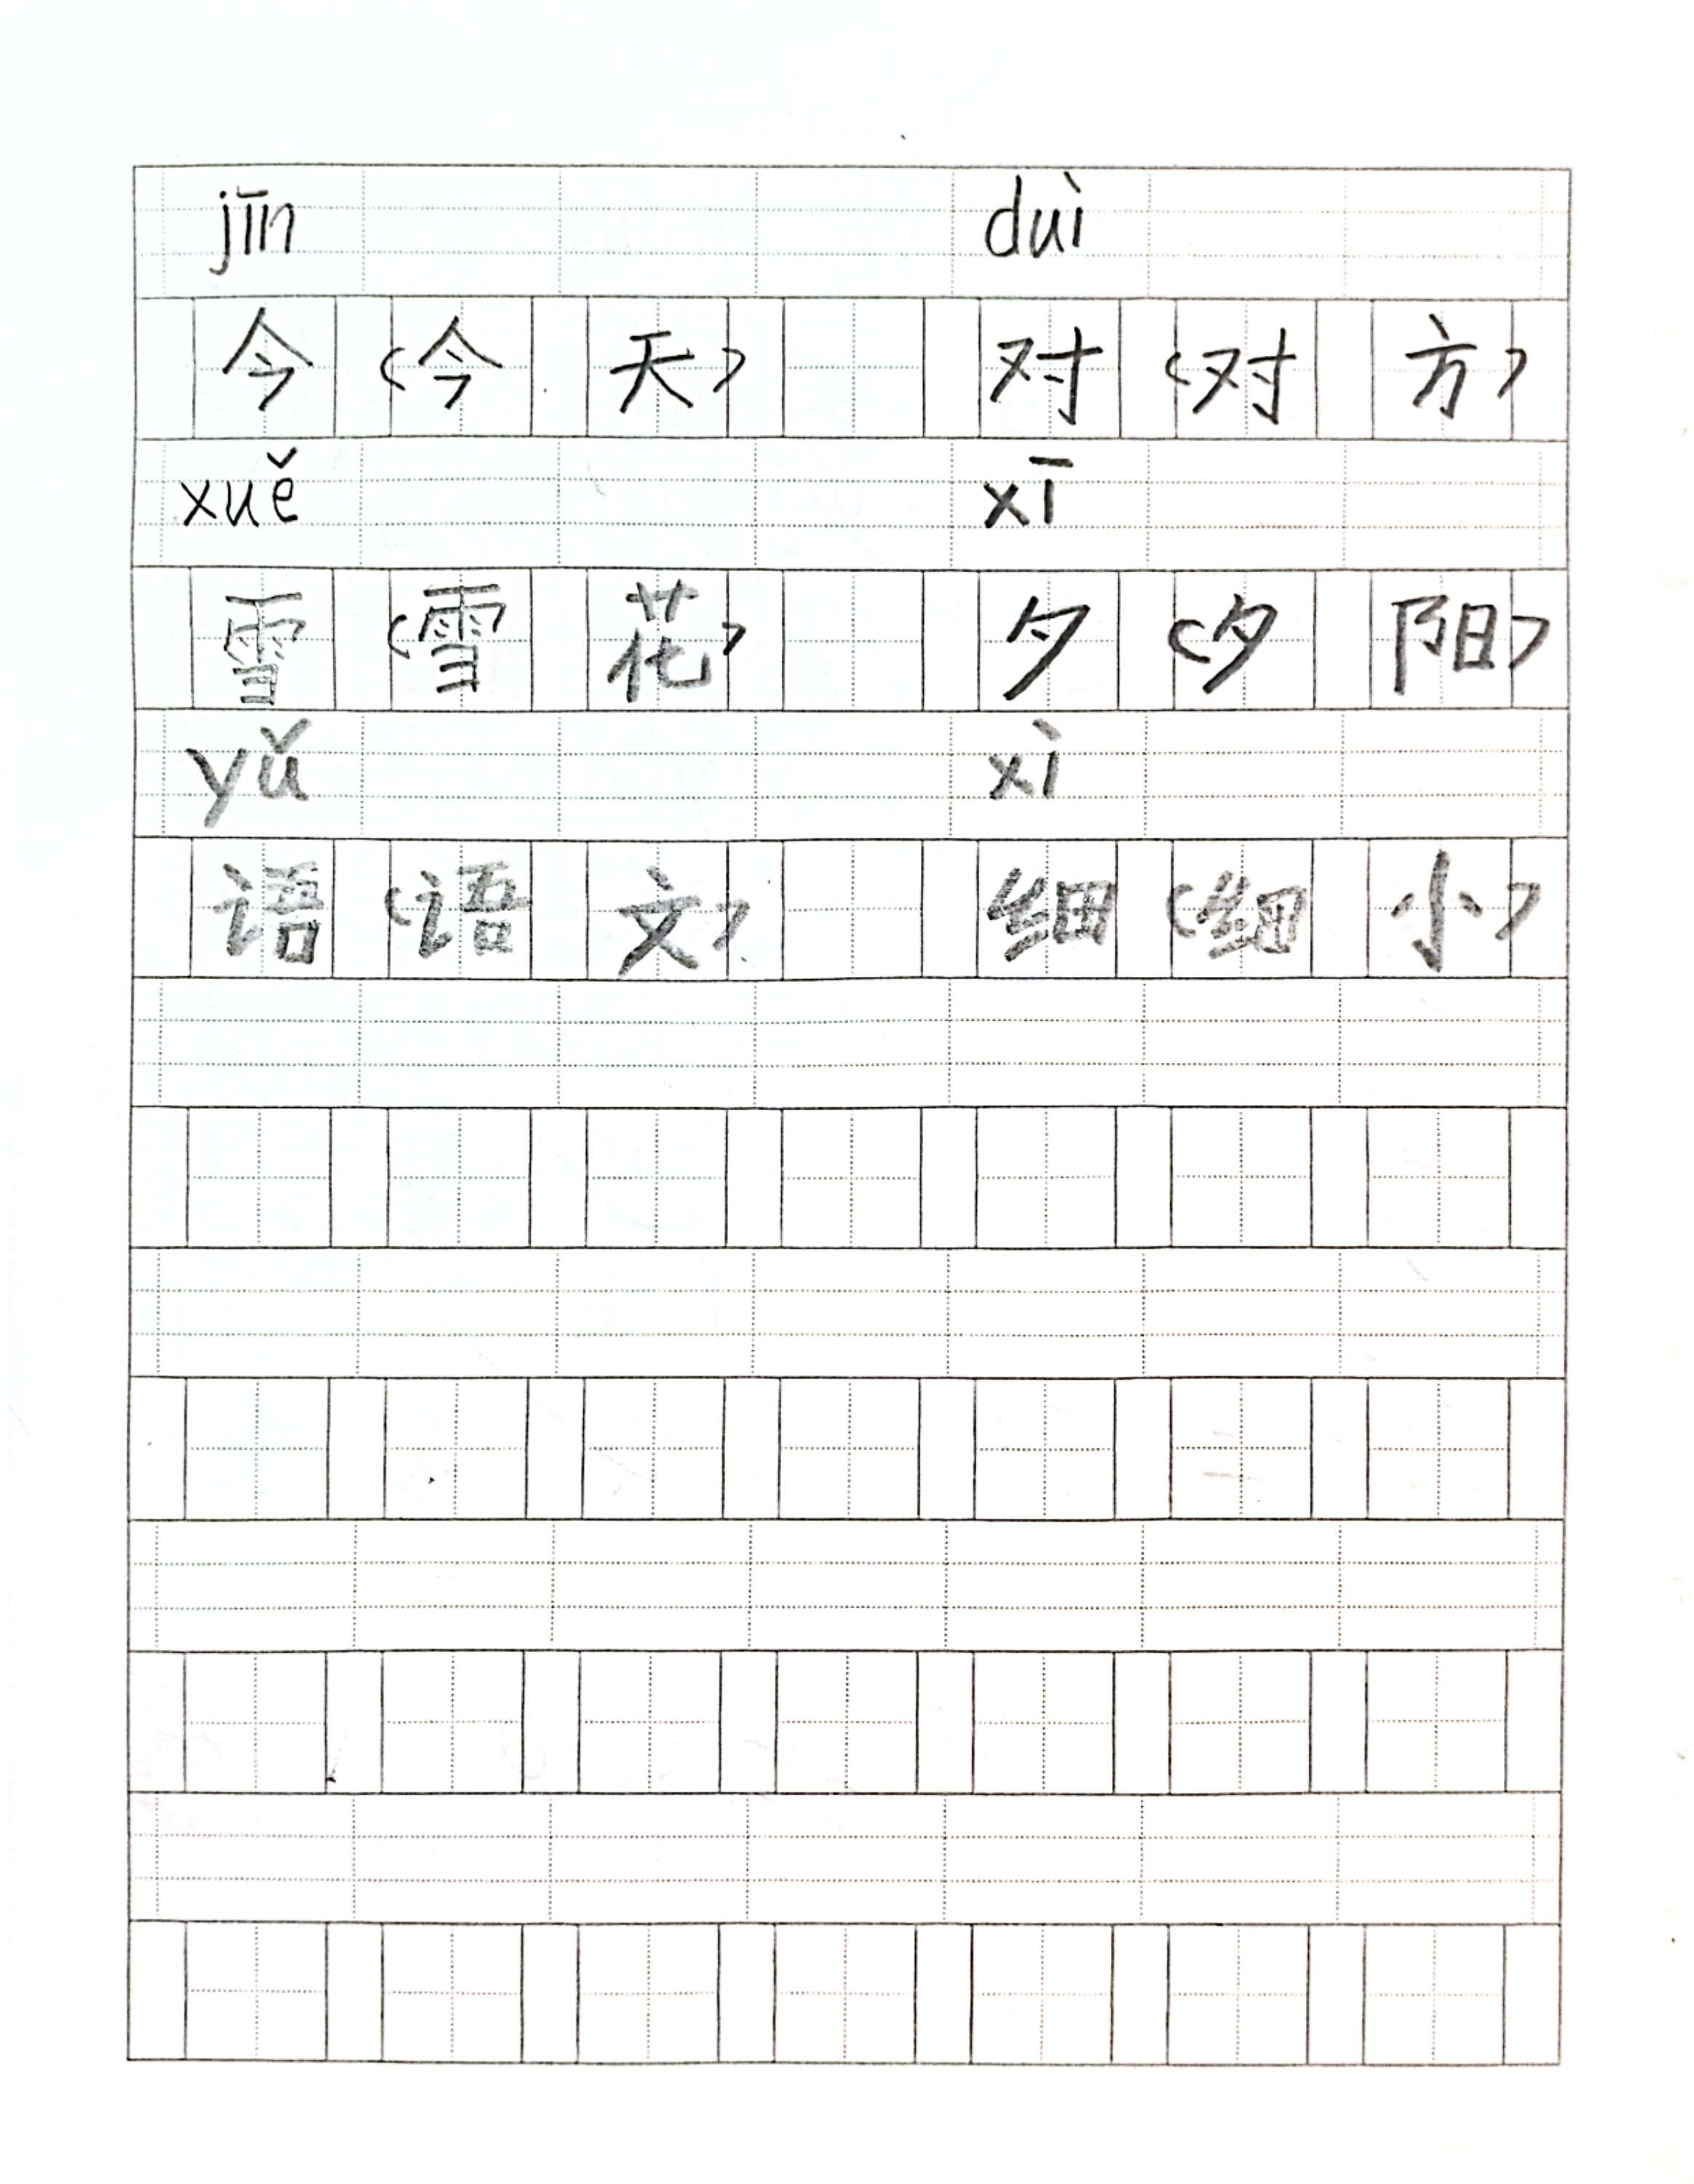 jīn duì
今（今天） 对（对方）
xuě xī
雪（雪花） 夕（夕阳）
yǔ xì
语（语文） 细（细小）